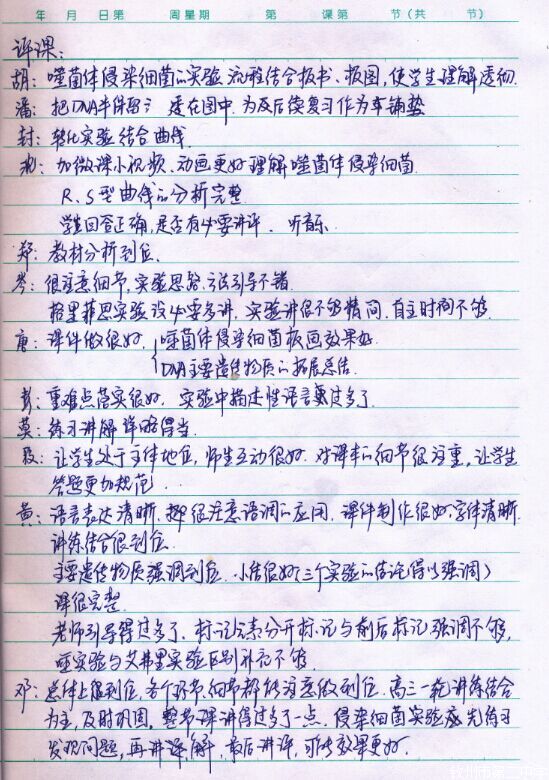 年 月 日第 周星期 第 课第 节(共 节)
评课:
胡: 噬菌体侵染细菌的实验 流程结合板书、板图, 使学生理解透彻.
潘: 把DNA半保留 在图中. 为及后续复习作为铺垫
封: 转化实验结合曲线
加微课小视频、动画更好理解噬菌体侵染细菌
R、S型曲线的分析完整
学生回答正确, 是否有必要讲评. 听音乐
郑: 教材分析到位、
岑: 很注意细节, 实验思路、方法引导不错
格里菲思实验没必要多讲, 实验讲很不够精简. 自主时间不够.
唐: 课件做很好. 噬菌体侵染细菌板画效果好
DNA主要遗传物质的拓展总结.
彭: 重难点落实很好, 实验中描述性语言过多了
莫: 练习讲解详略得当
让学生处于主体地位, 师生互动很好. 对课本的细节很注重, 让学生
答题更加规范.
黄: 语言表达清晰. 很注意语调的应用, 课件制作很好, 字体清晰.
讲练结合很到位
主要遗传物质强调到位. 小结很好(三个实验的结论得以强调)
课很完整
老师引导得过多了. 标记元素分开标记与前后标记强调不够,
噬实验与艾弗里实验区别补充不够.
邓: 总体上很到位, 各个环节细节都能注意做到位. 高三一轮讲练结合
为主, 及时巩固, 整节课讲得过多了一点. 侵染细菌实验应先练习
发现问题, 再讲课解, 最后讲评, 可能效果更好.